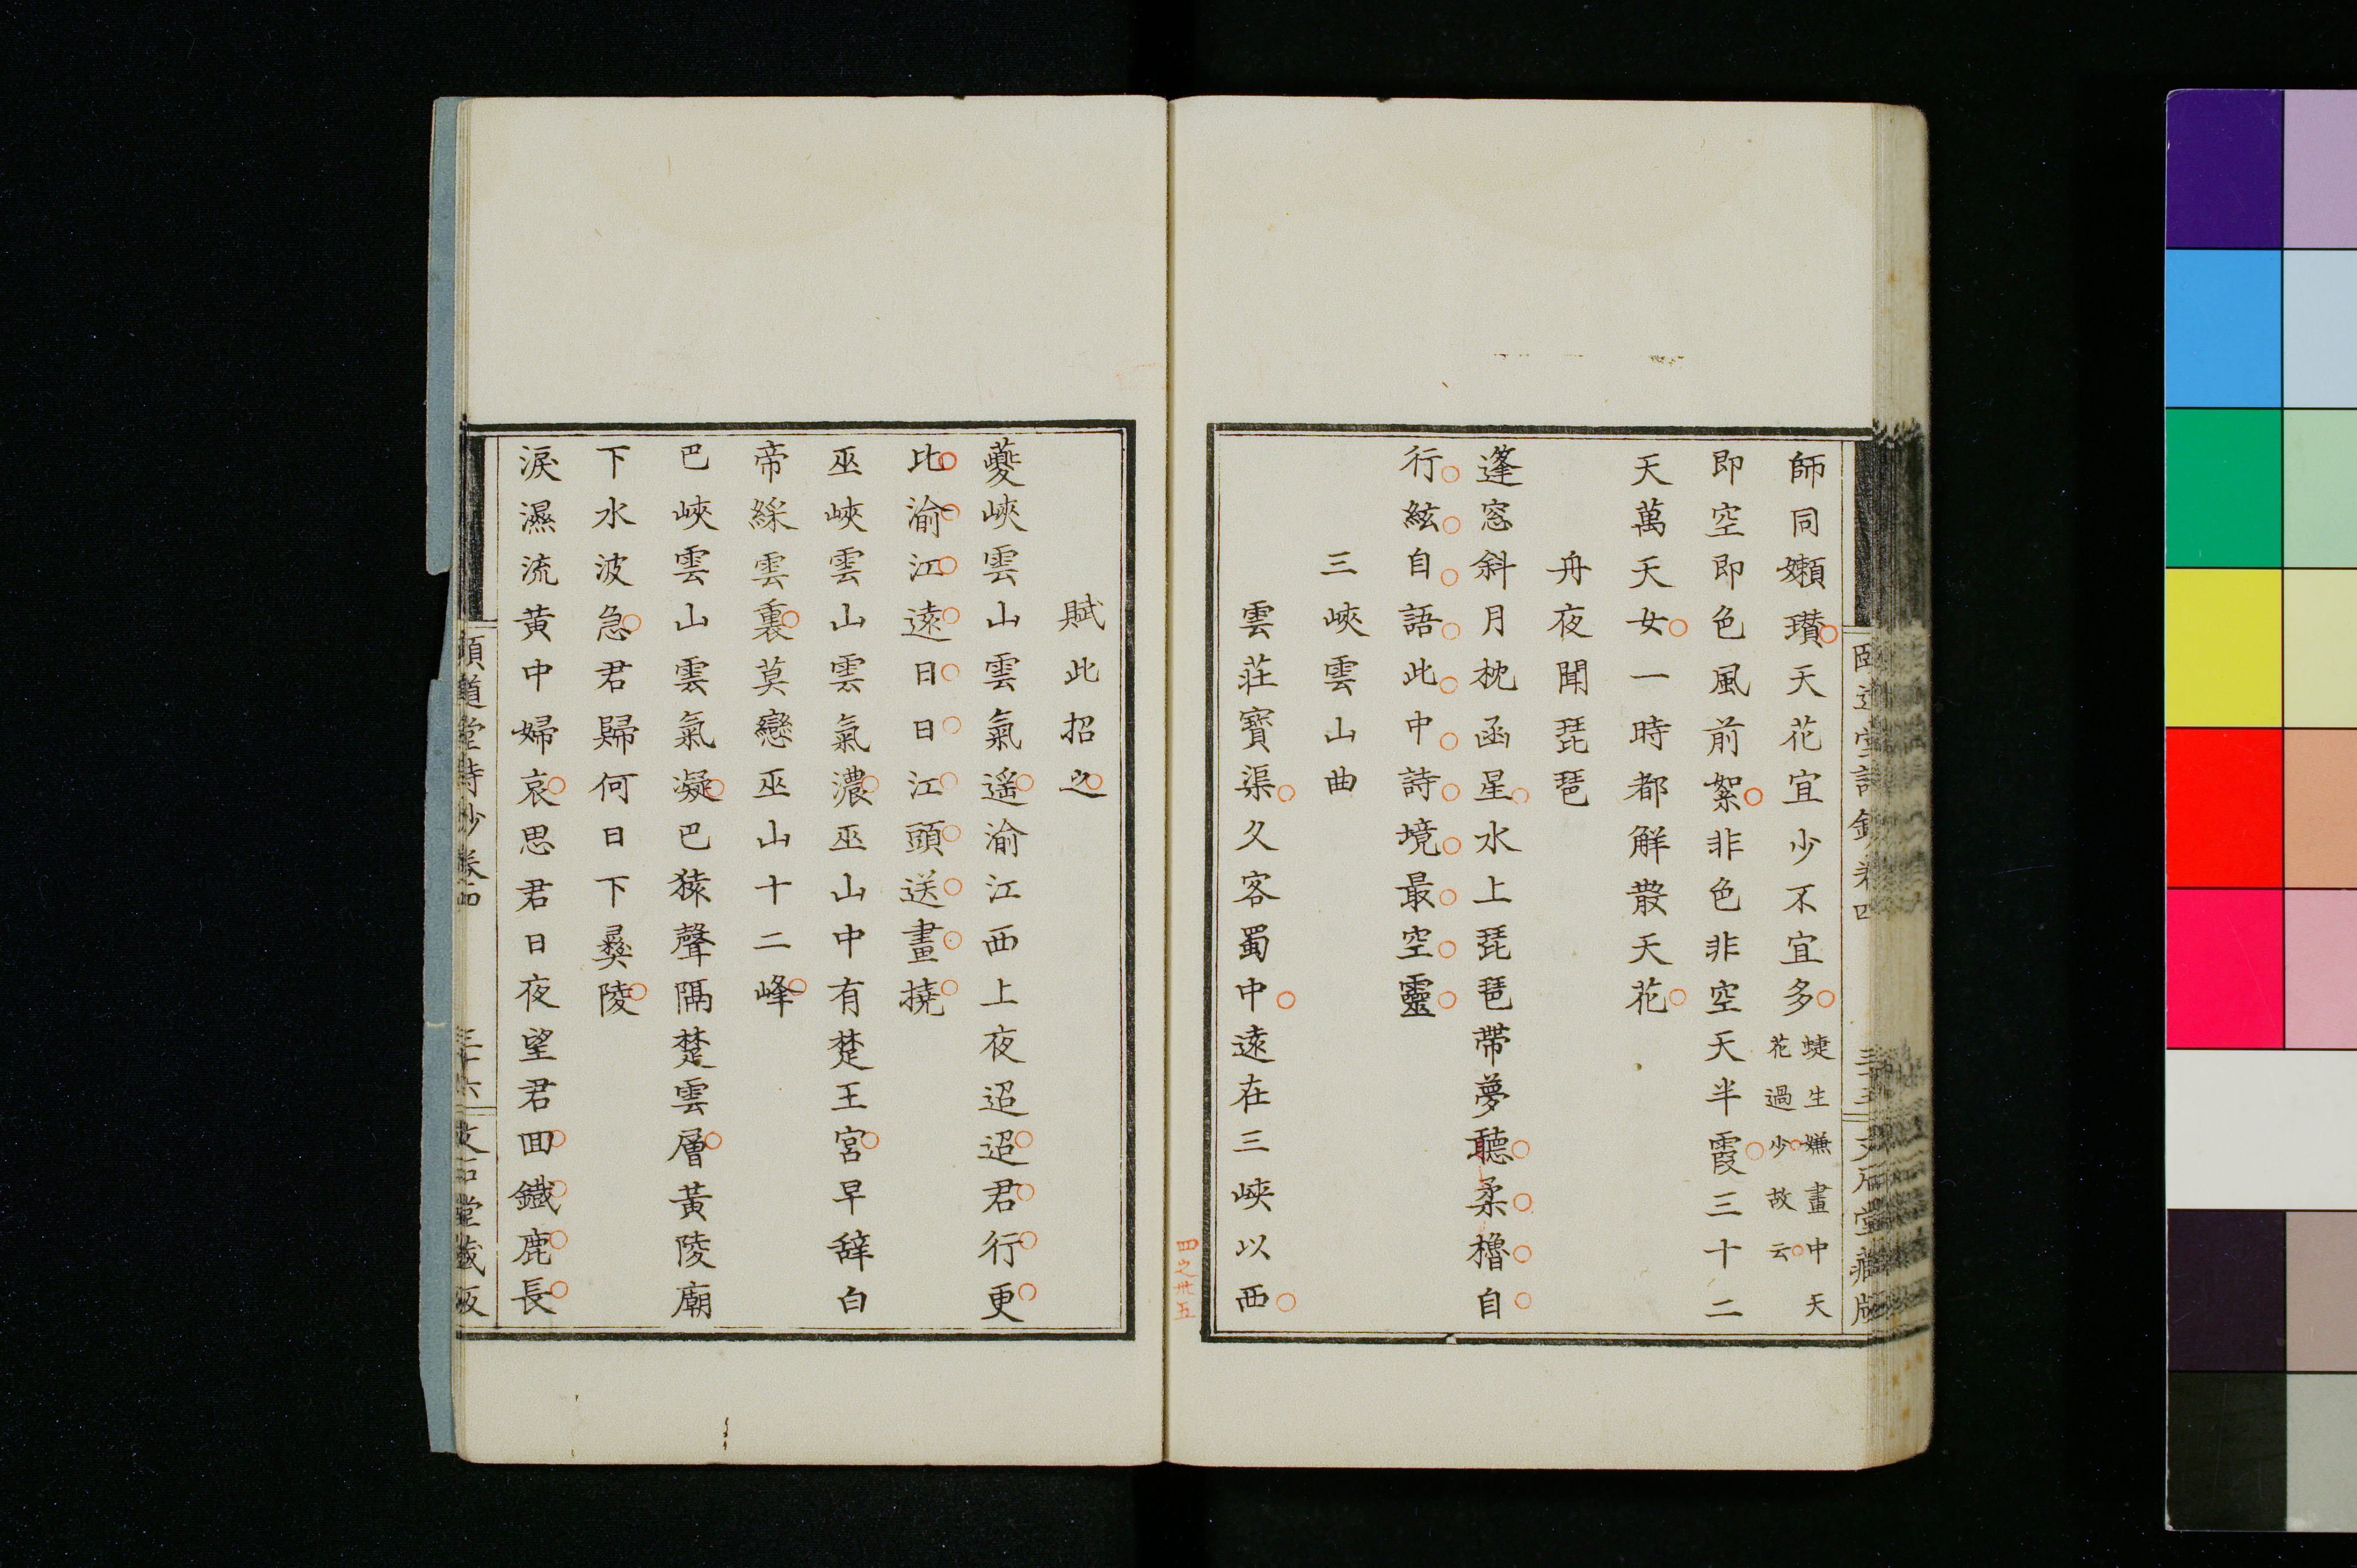 師同嬾瓚天花宜少不宜多蜨生嫌畫中天花過少故云
即空即色風前絮非色非空天半霞三十二
天萬天女一時都解散天花
舟夜聞琵琶
篷窓斜月枕函星水上琵琶帶夢聽柔櫓自
行絃自語此中詩境最空靈
三峽雲山曲
雲莊寶渠久客蜀中遠在三峽以西
四之卅五
賦此招之
夔峽雲山雲氣遙渝江西上夜迢迢君行更
比渝江遠日日江頭送畫撓
巫峽雲山雲氣濃巫山中有楚王宮早辭白
帝綵雲裏莫戀巫山十二峰
巴峽雲山雲氣凝巴猿聲隔楚雲層黃陵廟
下水波急君歸何日下彜陵
淚濕流黃中婦哀思君日夜望君回鐵鹿長
頤道堂詩鈔卷四 三十六 文石堂藏版